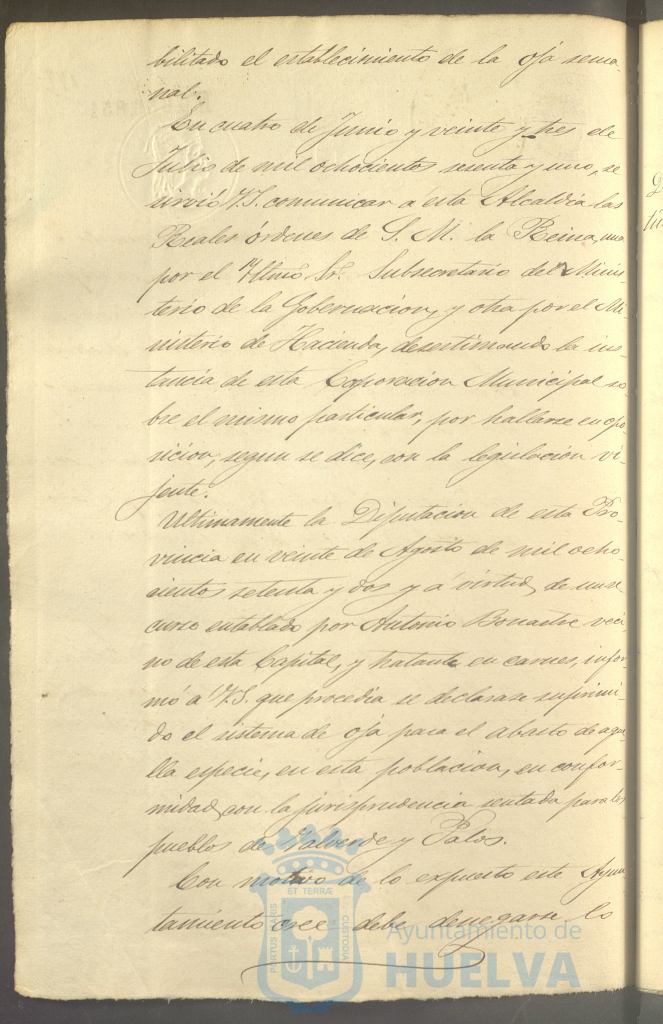 bilitado el establecimiento de la oja sema-
nal.
En cuatro de Junio y veinte y tres de
Julio de mil ochocientos sesenta y uno, se
sirvió V.S. comunicar a esta Alcaldia las
Reales órdenes de S. M. la Reina, una
por el Yltmo. Sr. Subsecretario del Minis-
terio de la Gobernacion, y otra por el Mi-
nisterio de Hacienda, desestimando la ins-
tancia de esta Coporacion Municipal so-
bre el mismo particular, por hallarse en opo-
sicion, segun se dice, con la legislacion vi-
jente.
Ultimamente la Diputacion de esta Pro-
vincia en veinte de Agosto de mil ocho-
cientos setenta y dos y á virtud de un re-
curso entablado por Antonio Bonastre veci-
no de esta Capital, y tratante en carnes, infor-
mó a V.S. que procedia se declarase suprimi-
do el sistema de oja para el abasto de aque-
lla especie, en esta poblacion, en confor-
midad con la jurisprudencia sentada para los
pueblos de Valverde y Palos.
Con motivo de lo expuesto este Ayun-
tamiento cree debe denegarse lo
PORTUS MARIS
ET TERRÆ
CUSTODIA
Ayuntamiento de
HUELVA